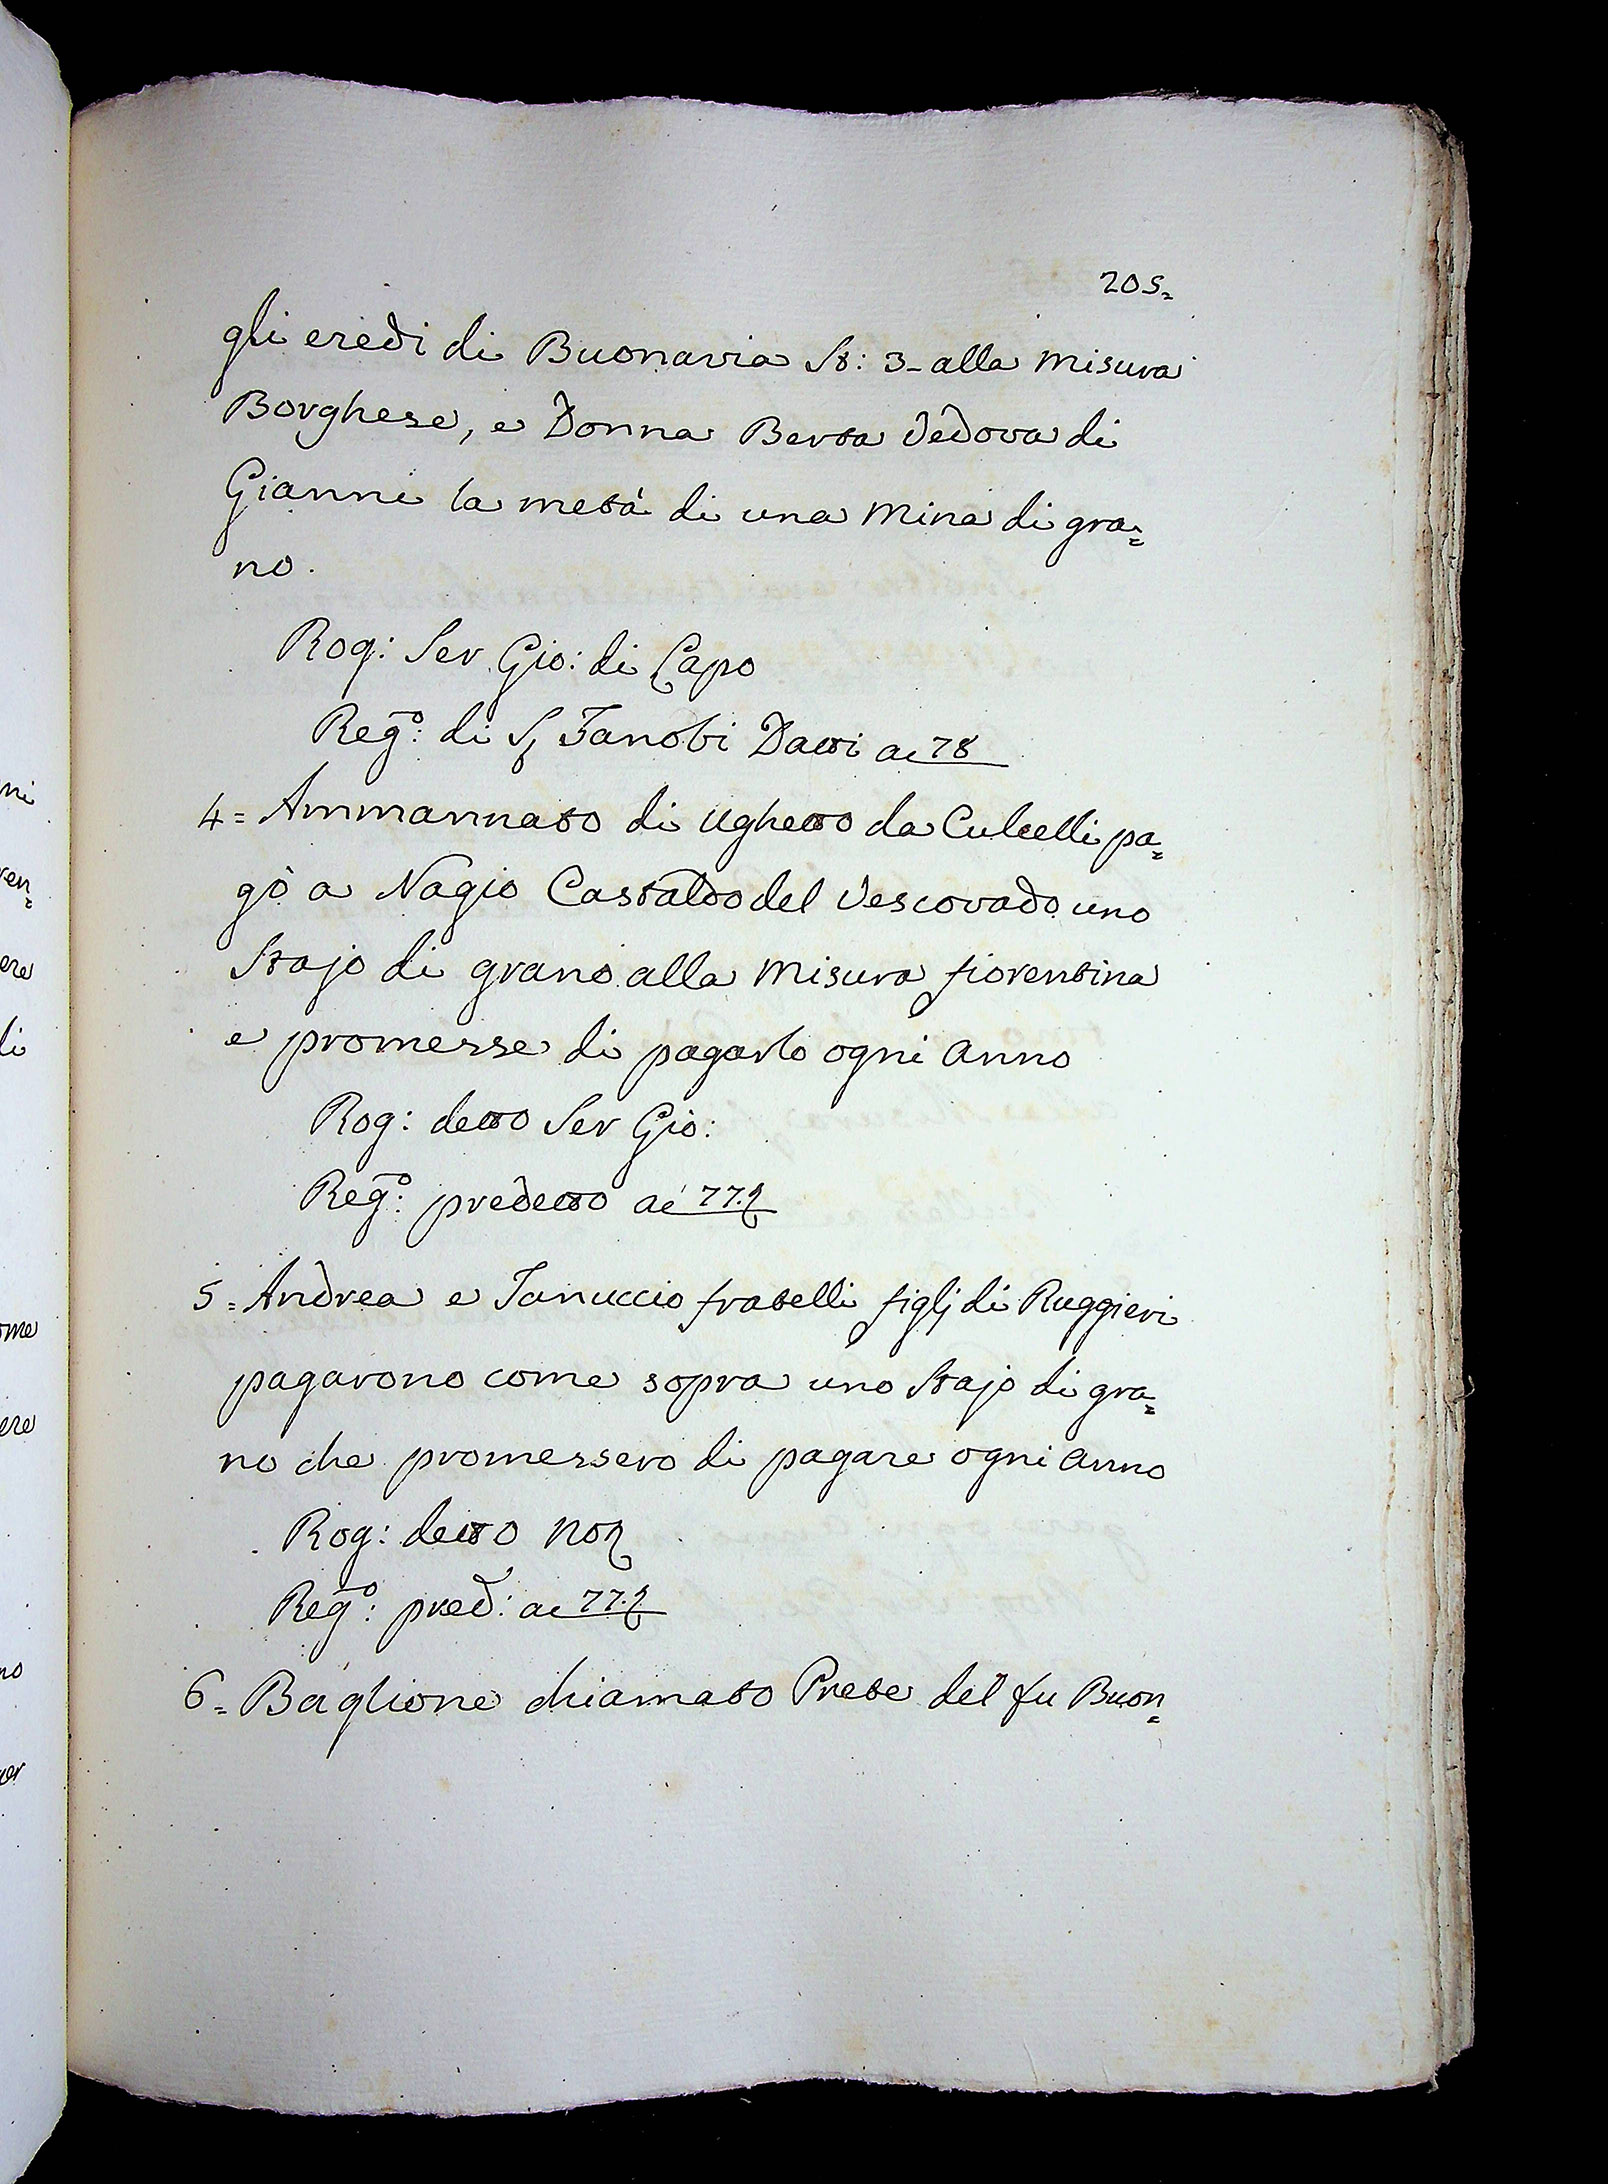 205=
gli eredi di Buonavia St: 3- alla misura
Borghese, e Donna Berta Vedova di
Gianni la metà di una mina di gra=
no.
Rog: Ser Gio: di Capo
Rego: di S Zanobi Datti a 78
4= Ammannato di Ughetto da Culcelli pa=
gò a Nagio Castaldo del Vescovado uno
Stajo di grano alla misura fiorentina
e promesse di pagarlo ogni anno
Rog: detto Ser Gio:
Rego: predetto a 77.
5= Andrea e Januccio fratelli figlj di Ruggieri
pagarono come sopra uno Stajo di gra=
no che promessero di pagare ogni anno
Rog: detto Not
Rego: pred: a 77.
6= Baglione chiamato Prete del fu Buon=
ni
ven=
ere
di
ome
ere
no